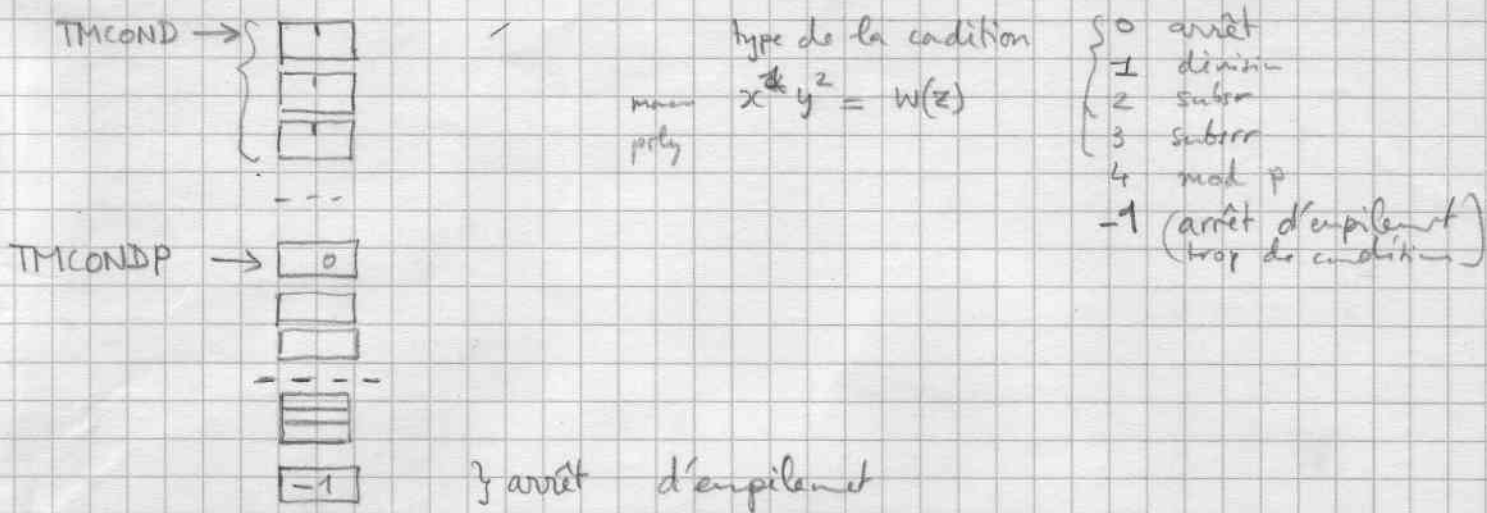 TMCOND →
type de la condition
0 arrêt
1 division
x y² = W(z)
2 subsr
poly
3 subsrr
4 mod p
-1 (arrêt d'empilement
trop de condition)
TMCONDP → 0
-1 } arrêt d'empilement